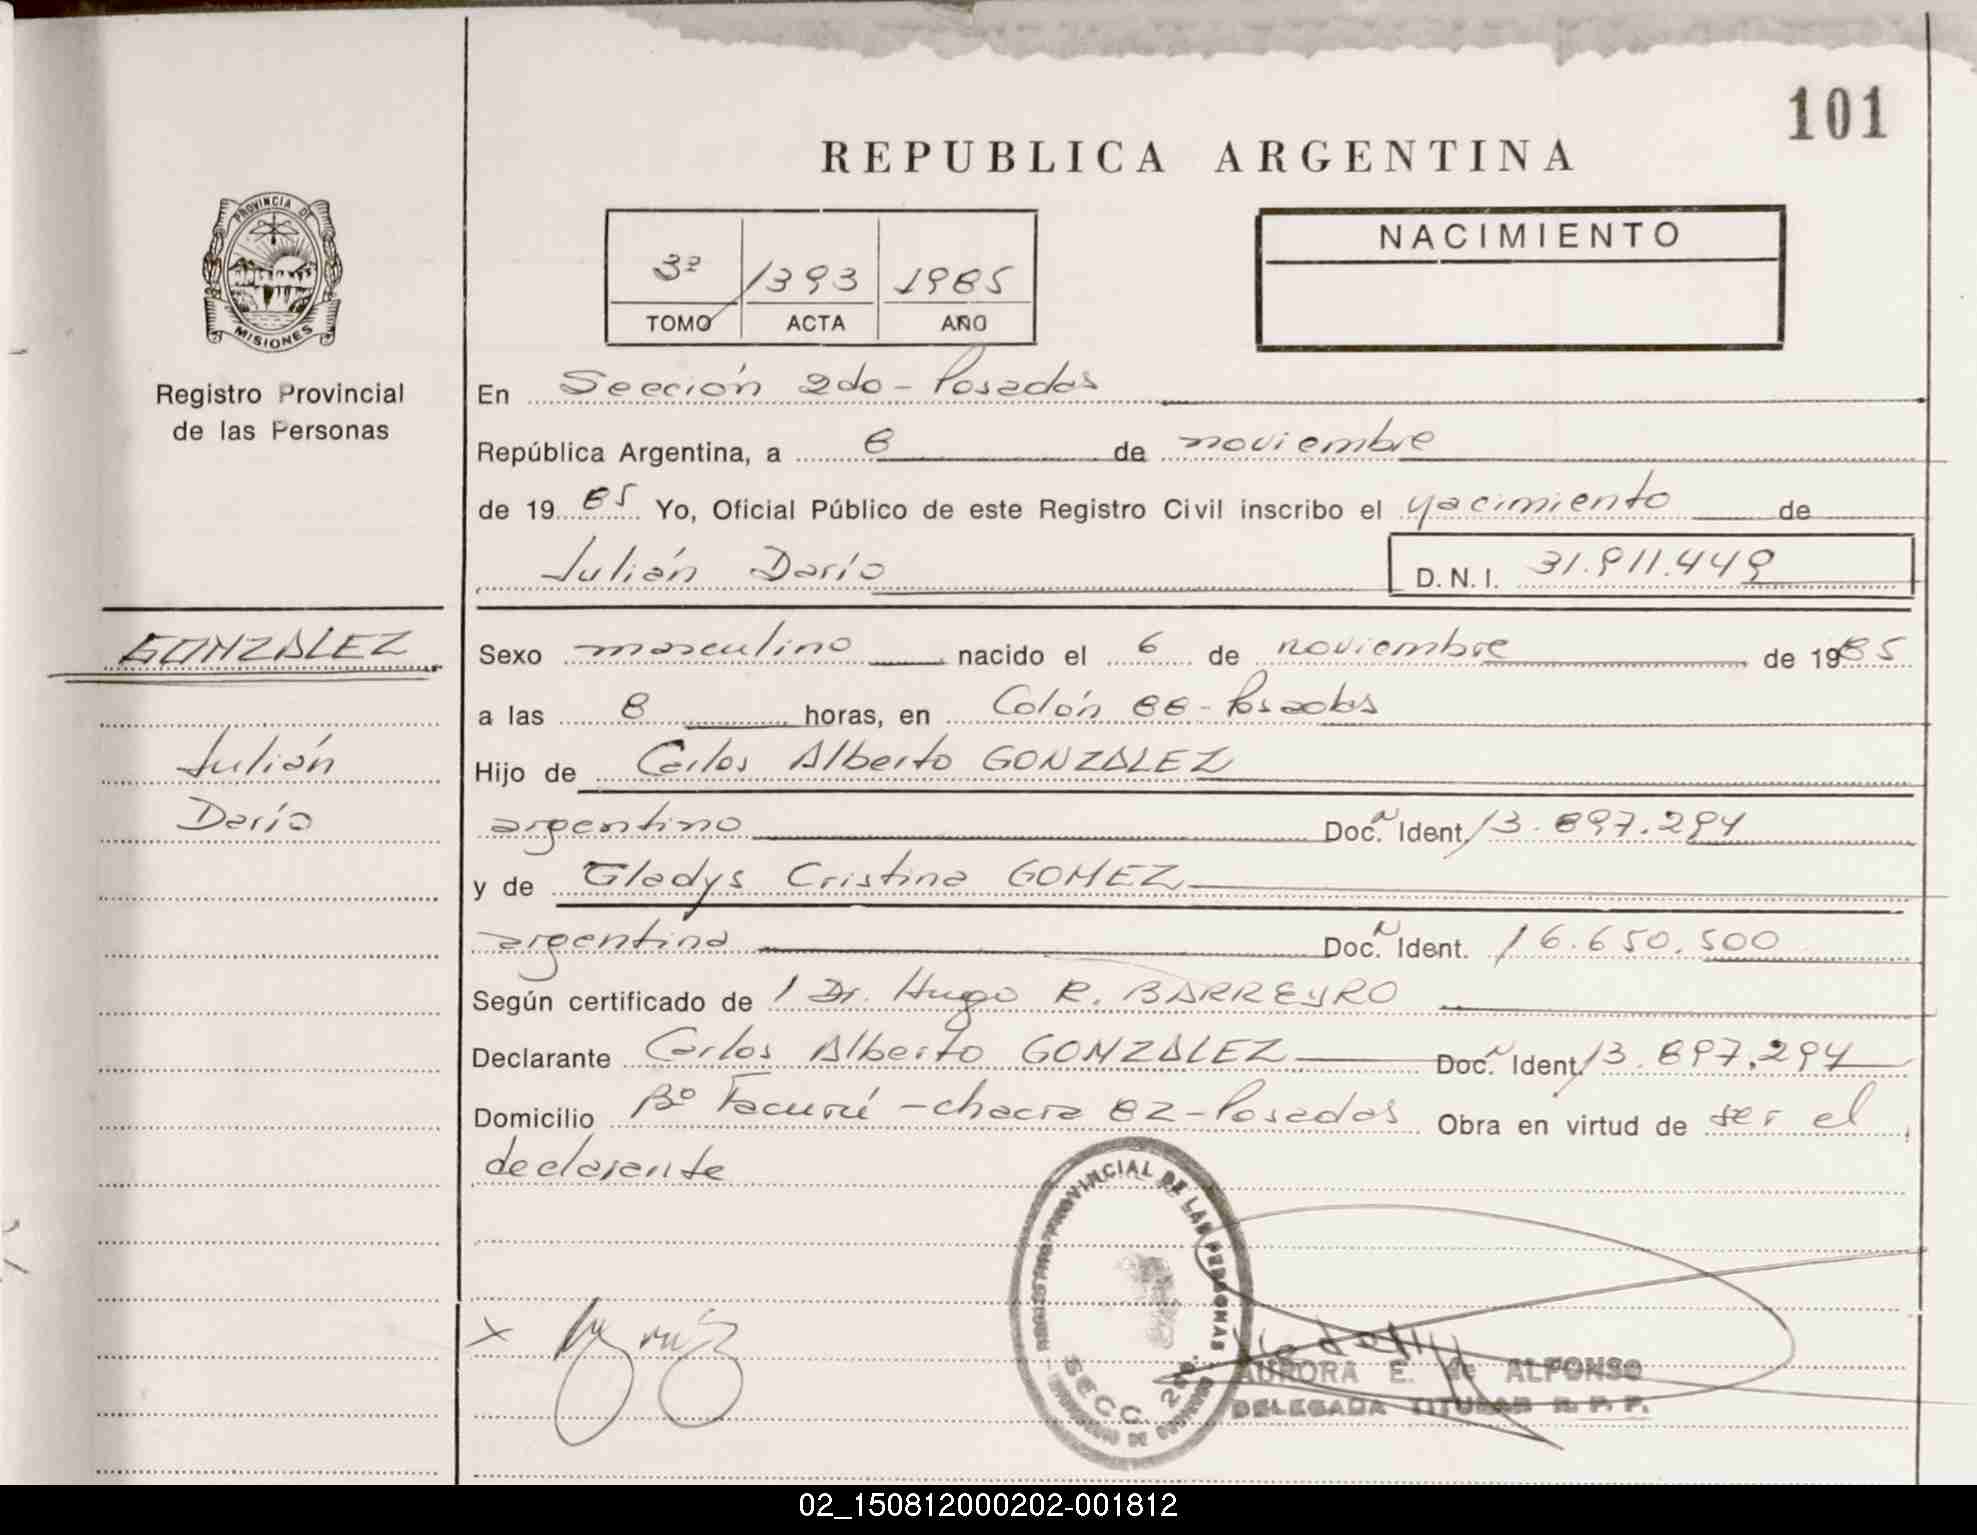 101
REPUBLICA ARGENTINA
PROVINCIA DE MISIONES
Registro Provincial
de las Personas
3º 1393 1985
TOMO ACTA AÑO
NACIMIENTO
En Sección 2do - Posadas
República Argentina, a 8 de noviembre
de 19 85 Yo, Oficial Público de este Registro Civil inscribo el nacimiento de
Julián Darío D.N.I. 31.911.449
GONZALEZ
Julián
Darío
Sexo masculino nacido el 6 de noviembre de 1985
a las 8 horas, en Colón 88 - Posadas
Hijo de Carlos Alberto GONZALEZ
argentino Doc.ᴺ Ident. 13.897.294
y de Gladys Cristina GOMEZ
argentina Doc.ᴺ Ident. 16.650.500
Según certificado de 1 Dr. Hugo R. BARREYRO
Declarante Carlos Alberto GONZALEZ Doc.ᴺ Ident. 13.897.294
Domicilio Bº Tacurú - chacra 82 - Posadas Obra en virtud de ser el
declarante
REGISTRO PROVINCIAL DE LAS PERSONAS
SECC. 2da.
AURORA E. de ALFONSO
DELEGADA TITULAR R. P. P.
02_150812000202-001812